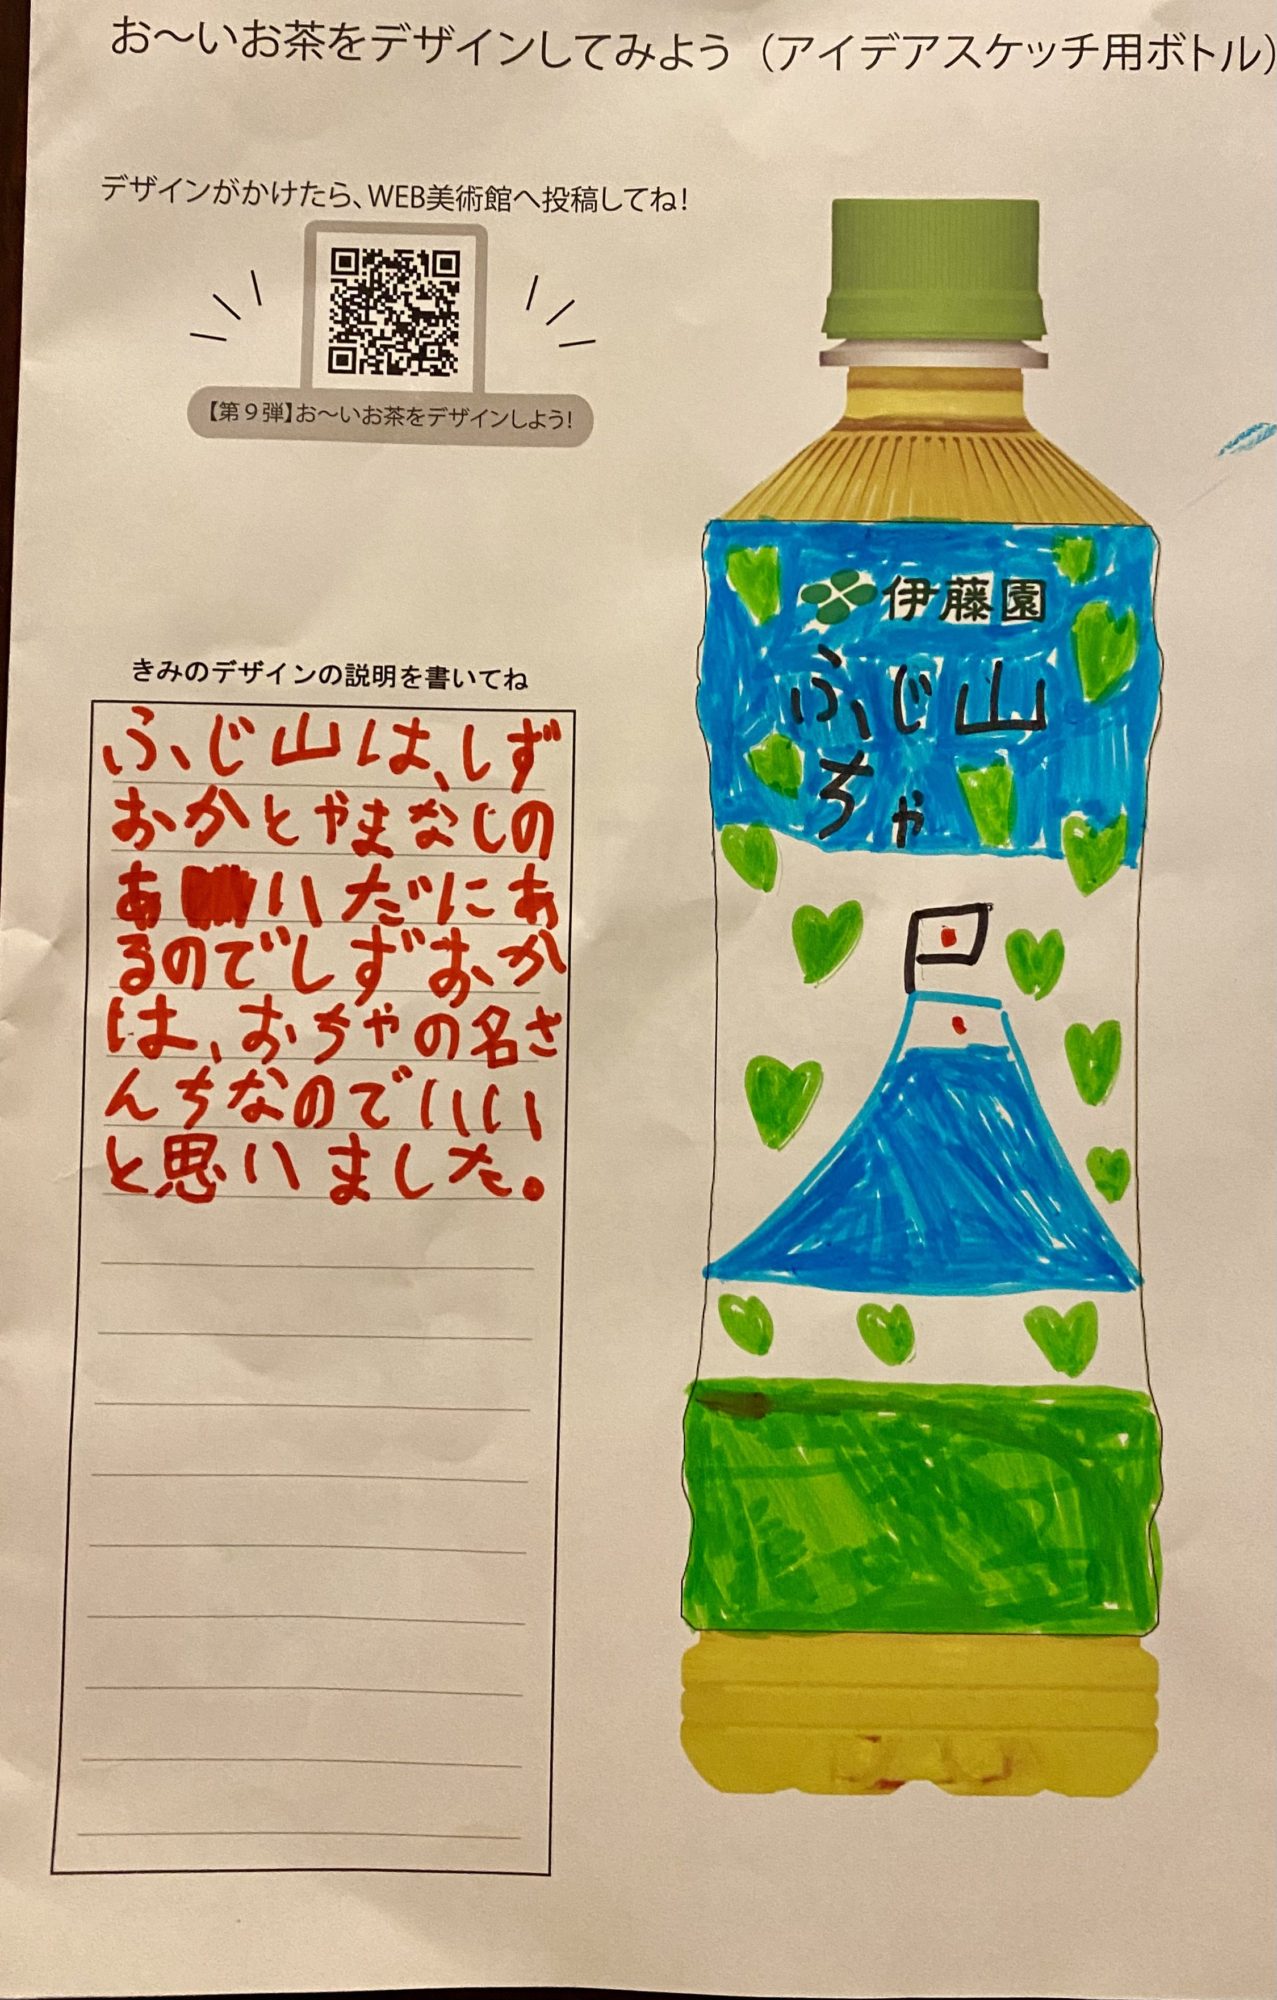 お〜いお茶をデザインしてみよう（アイデアスケッチ用ボトル）
デザインがかけたら、WEB美術館へ投稿してね！
【第９弾】お〜いお茶をデザインしよう！
きみのデザインの説明を書いてね
ふじ山は、しず
おかとやまなしの
あいだにあ
るのでしずおか
は、おちゃの名さ
んちなのでいい
と思いました。
伊藤園
ふじ山
ちゃ